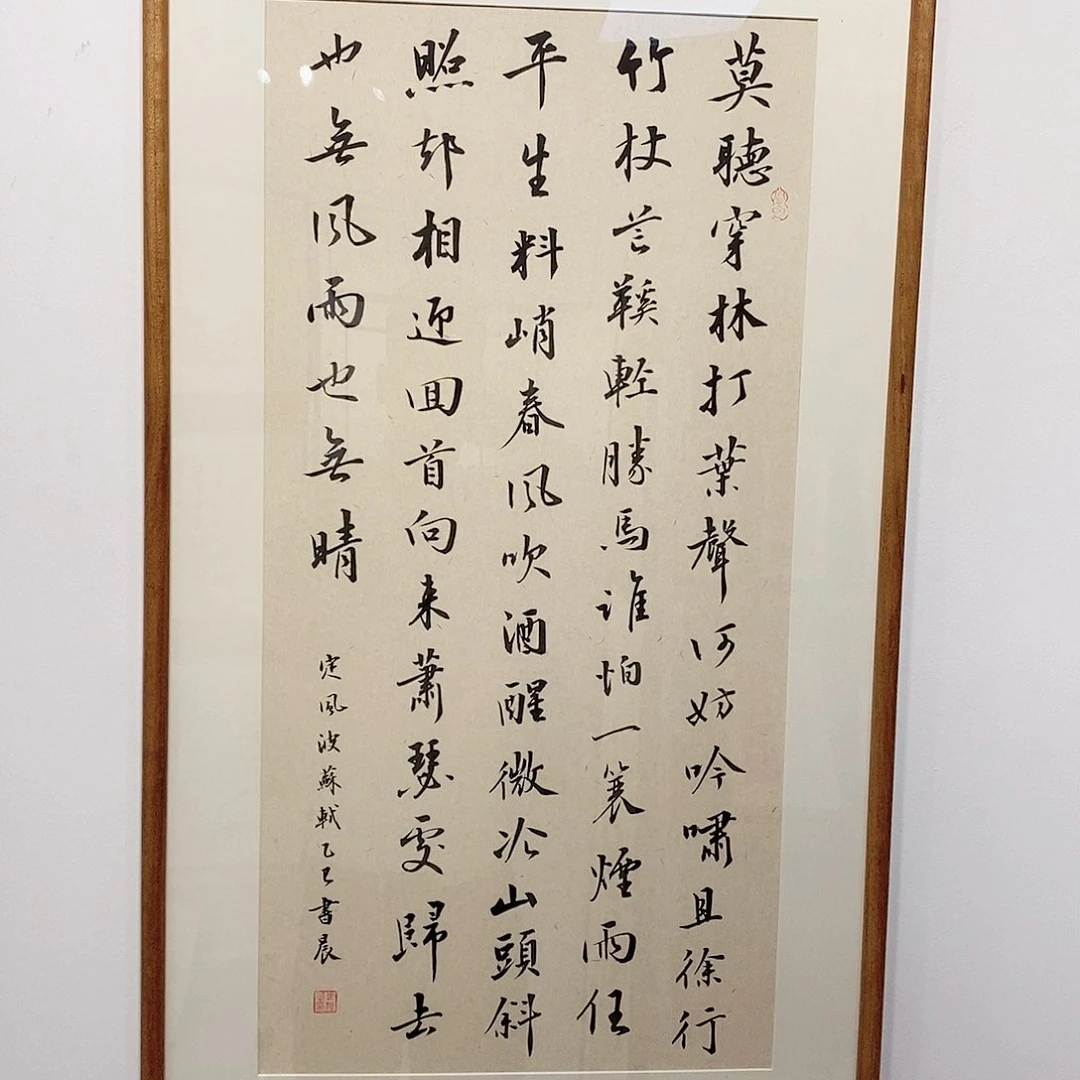 莫聽穿林打葉聲何妨吟嘯且徐行
竹杖芒鞵輕勝馬誰怕一蓑煙雨任
平生料峭春風吹酒醒微冷山頭斜
照却相迎回首向来蕭瑟處歸去
也無風雨也無晴
定風波蘇軾乙巳書晨